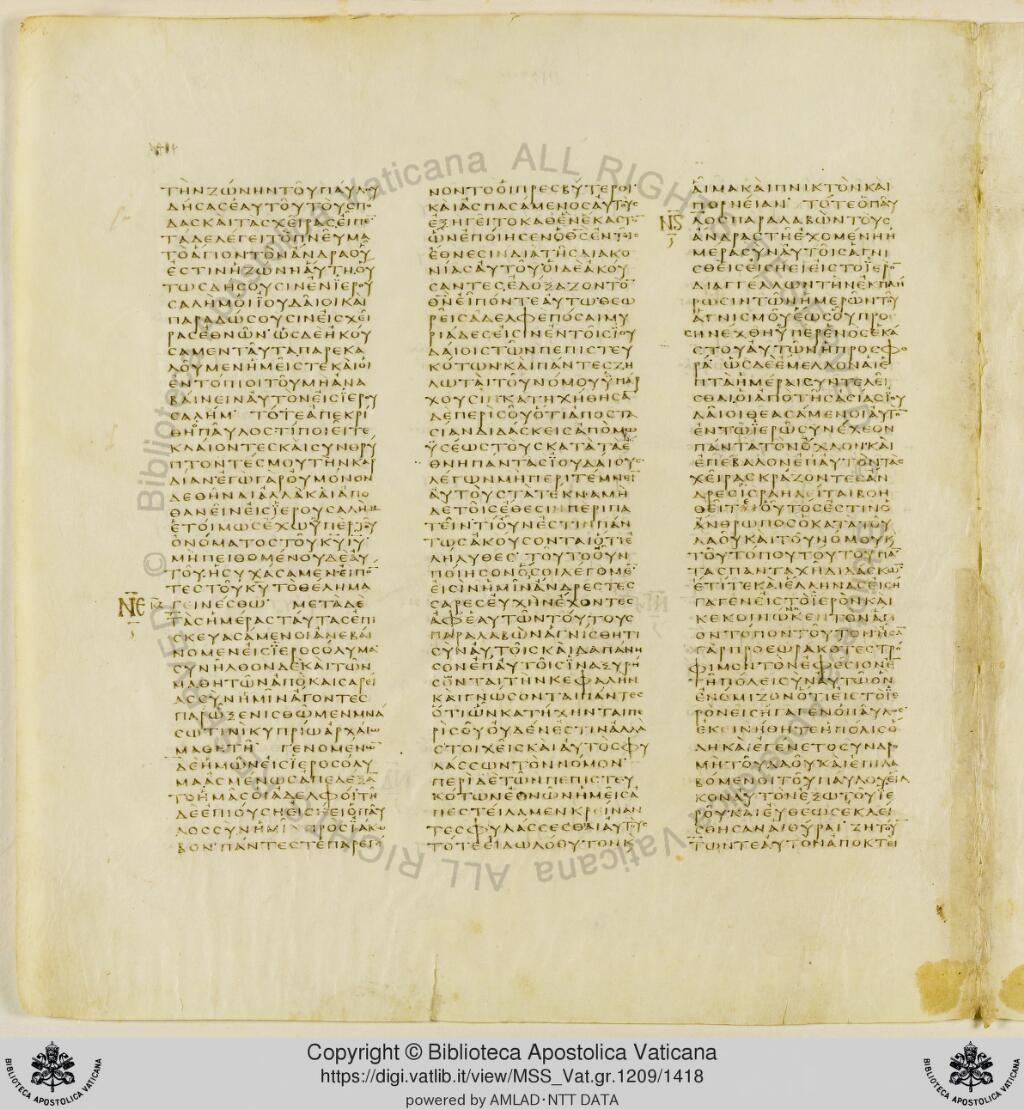 ΤΗΝΖΩΝΗΝΤΟΥΠΑΥΛΟΥ
ΔΗΣΑΣΕΑΥΤΟΥΤΟΥΣΠΟ
ΔΑΣΚΑΙΤΑΣΧΕΙΡΑΣΕΙΠΕ
ΤΑΔΕΛΕΓΕΙΤΟΠΝΕΥΜΑ
ΤΟΑΓΙΟΝΤΟΝΑΝΔΡΑΟΥ
ΕΣΤΙΝΗΖΩΝΗΑΥΤΗΟΥ
ΤΩΣΔΗΣΟΥΣΙΝΕΝΪΕΡΟΥ
ΣΑΛΗΜΟΙΪΟΥΔΑΙΟΙΚΑΙ
ΠΑΡΑΔΩΣΟΥΣΙΝΕΙΣΧΕΙ
ΡΑΣΕΘΝΩΝ·ΩΣΔΕΗΚΟΥ
ΣΑΜΕΝΤΑΥΤΑΠΑΡΕΚΑ
ΛΟΥΜΕΝΗΜΕΙΣΤΕΚΑΙΟΙ
ΕΝΤΟΠΙΟΙΤΟΥΜΗΑΝΑ
ΒΑΙΝΕΙΝΑΥΤΟΝΕΙΣΪΕΡΟΥ
ΣΑΛΗΜ· ΤΟΤΕΑΠΕΚΡΙ
ΘΗΠΑΥΛΟΣΤΙΠΟΙΕΙΤΕ
ΚΛΑΙΟΝΤΕΣΚΑΙΣΥΝΘΡΥ
ΠΤΟΝΤΕΣΜΟΥΤΗΝΚΑΡ
ΔΙΑΝΕΓΩΓΑΡΟΥΜΟΝΟΝ
ΔΕΘΗΝΑΙΑΛΛΑΚΑΙΑΠΟ
ΘΑΝΕΙΝΕΙΣΪΕΡΟΥΣΑΛΗΜ
ΕΤΟΙΜΩΣΕΧΩΫΠΕΡΤΟΥ
ΟΝΟΜΑΤΟΣΤΟΥΚΥΙΥ·
ΜΗΠΕΙΘΟΜΕΝΟΥΔΕΑΥ
ΤΟΥΗΣΥΧΑΣΑΜΕΝΕΙΠΟ̅
ΤΕΣΤΟΥΚΥΤΟΘΕΛΗΜΑ
ΝΕ ΓΕΙΝΕΣΘΩ· ΜΕΤΑΔΕ
ΤΑΣΗΜΕΡΑΣΤΑΥΤΑΣΕΠΙ
ΣΚΕΥΑΣΑΜΕΝΟΙΑΝΕΒΑΙ
ΝΟΜΕΝΕΙΣΪΕΡΟΣΟΛΥΜΑ
ΣΥΝΗΛΘΟΝΔΕΚΑΙΤΩΝ
ΜΑΘΗΤΩΝΑΠΟΚΑΙΣΑΡΕΙ
ΑΣΣΥΝΗΜΙΝΑΓΟΝΤΕΣ
ΠΑΡΩΞΕΝΙΣΘΩΜΕΝΜΝΑ
ΣΩΤΙΝΙΚΥΠΡΙΩΑΡΧΑΙΩ
ΜΑΘΗΤΗ· ΓΕΝΟΜΕΝΩ̅
ΔΕΗΜΩΝΕΙΣΪΕΡΟΣΟΛΥ
ΜΑΑΣΜΕΝΩΣΑΠΕΔΕΞΑ̅
ΤΟΗΜΑΣΟΙΑΔΕΛΦΟΙΤΗ
ΔΕΕΠΙΟΥΣΗΕΙΣΗΕΙΟΠΑΥ
ΛΟΣΣΥΝΗΜΙΝΠΡΟΣΪΑΚΩ
ΒΟΝ·ΠΑΝΤΕΣΤΕΠΑΡΕΓΕ
ΝΟΝΤΟΟΙΠΡΕΣΒΥΤΕΡΟΙ
ΚΑΙΑΣΠΑΣΑΜΕΝΟΣΑΥΤΟΥΣ
ΕΞΗΓΕΙΤΟΚΑΘΕΝΕΚΑΣΤΟ̅
ΩΝΕΠΟΙΗΣΕΝΟΘΣΕΝΤΟΙΣ
ΕΘΝΕΣΙΝΔΙΑΤΗΣΔΙΑΚΟ
ΝΙΑΣΑΥΤΟΥΟΙΔΕΑΚΟΥ
ΣΑΝΤΕΣΕΔΟΞΑΖΟΝΤΟ̅
ΘΝΕΙΠΟΝΤΕΑΥΤΩ·ΘΕΩ
ΡΕΙΣΑΔΕΛΦΕΠΟΣΑΙΜΥ
ΡΙΑΔΕΣΕΙΣΙΝΕΝΤΟΙΣΪΟΥ
ΔΑΙΟΙΣΤΩΝΠΕΠΙΣΤΕΥ
ΚΟΤΩΝΚΑΙΠΑΝΤΕΣΖΗ
ΛΩΤΑΙΤΟΥΝΟΜΟΥΫΠΑΡ
ΧΟΥΣΙΝΚΑΤΗΧΗΘΗΣΑ̅
ΔΕΠΕΡΙΣΟΥΟΤΙΑΠΟΣΤΑ
ΣΙΑΝΔΙΔΑΣΚΕΙΣΑΠΟΜΩ
ΫΣΕΩΣΤΟΥΣΚΑΤΑΤΑΕ
ΘΝΗΠΑΝΤΑΣΪΟΥΔΑΙΟΥΣ
ΛΕΓΩΝΜΗΠΕΡΙΤΕΜΝΕΙ̅
ΑΥΤΟΥΣΤΑΤΕΚΝΑΜΗ
ΔΕΤΟΙΣΕΘΕΣΙΝΠΕΡΙΠΑ
ΤΕΙΝΤΙΟΥΝΕΣΤΙΝΠΑΝ
ΤΩΣΑΚΟΥΣΟΝΤΑΙΟΤΙΕ
ΛΗΛΥΘΕΣ· ΤΟΥΤΟΟΥΝ
ΠΟΙΗΣΟΝΟΣΟΙΛΕΓΟΜΕ̅
ΕΙΣΙΝΗΜΙΝΑΝΔΡΕΣΤΕΣ
ΣΑΡΕΣΕΥΧΗΝΕΧΟΝΤΕΣ
ΑΦΕΑΥΤΩΝΤΟΥΤΟΥΣ
ΠΑΡΑΛΑΒΩΝΑΓΝΙΣΘΗΤΙ
ΣΥΝΑΥΤΟΙΣΚΑΙΔΑΠΑΝΗ
ΣΟΝΕΠΑΥΤΟΙΣΙΝΑΞΥΡΗ
ΣΩΝΤΑΙΤΗΝΚΕΦΑΛΗΝ
ΚΑΙΓΝΩΣΟΝΤΑΙΠΑΝΤΕΣ
ΟΤΙΩΝΚΑΤΗΧΗΝΤΑΙΠΕ
ΡΙΣΟΥΟΥΔΕΝΕΣΤΙΝΑΛΛΑ
ΣΤΟΙΧΕΙΣΚΑΙΑΥΤΟΣΦΥ
ΛΑΣΣΩΝΤΟΝΝΟΜΟΝ·
ΠΕΡΙΔΕΤΩΝΠΕΠΙΣΤΕΥ
ΚΟΤΩΝΕΘΝΩΝΗΜΕΙΣΑ
ΠΕΣΤΕΙΛΑΜΕΝΚΡΕΙΝΑΝ
ΤΕΣΦΥΛΑΣΣΕΣΘΑΙΑΥΤΟΥΣ
ΤΟΤΕΕΙΔΩΛΟΘΥΤΟΝΚ
ΑΙΜΑΚΑΙΠΝΙΚΤΟΝΚΑΙ
ΠΟΡΝΕΙΑΝ· ΤΟΤΕΟΠΑΥ
ΝϚ ΛΟΣΠΑΡΑΛΑΒΩΝΤΟΥΣ
ΑΝΔΡΑΣΤΗΕΧΟΜΕΝΗΗ
ΜΕΡΑΣΥΝΑΥΤΟΙΣΑΓΝΙ
ΣΘΕΙΣΕΙΣΗΕΙΕΙΣΤΟΪΕΡΟ̅
ΔΙΑΓΓΕΛΛΩΝΤΗΝΕΚΠΛΗ
ΡΩΣΙΝΤΩΝΗΜΕΡΩΝΤΟΥ
ΑΓΝΙΣΜΟΥΕΩΣΟΥΠΡΟ
ΣΗΝΕΧΘΗΫΠΕΡΕΝΟΣΕΚΑ
ΣΤΟΥΑΥΤΩΝΗΠΡΟΣΦΟ
ΡΑ· ΩΣΔΕΕΜΕΛΛΟΝΑΙΕ
ΠΤΑΗΜΕΡΑΙΣΥΝΤΕΛΕΙ
ΣΘΑΙΟΙΑΠΟΤΗΣΑΣΙΑΣΪΟΥ
ΔΑΙΟΙΘΕΑΣΑΜΕΝΟΙΑΥΤΟ̅
ΕΝΤΩΪΕΡΩΣΥΝΕΧΕΟΝ
ΠΑΝΤΑΤΟΝΟΧΛΟΝΚΑΙ
ΕΠΕΒΑΛΟΝΕΠΑΥΤΟΝΤΑΣ
ΧΕΙΡΑΣΚΡΑΖΟΝΤΕΣΑΝ
ΔΡΕΣΙΣΡΑΗΛΕΙΤΑΙΒΟΗ
ΘΕΙΤΕΟΥΤΟΣΕΣΤΙΝΟ
ΑΝΘΡΩΠΟΣΟΚΑΤΑΤΟΥ
ΛΑΟΥΚΑΙΤΟΥΝΟΜΟΥΚ
ΤΟΥΤΟΠΟΥΤΟΥΤΟΥΠΑ̅
ΤΑΣΠΑΝΤΑΧΗΔΙΔΑΣΚΩ̅
ΕΤΙΤΕΚΑΙΕΛΛΗΝΑΣΕΙΣΗ
ΓΑΓΕΝΕΙΣΤΟΪΕΡΟΝΚΑΙ
ΚΕΚΟΙΝΩΚΕΝΤΟΝΑΓΙ
ΟΝΤΟΠΟΝΤΟΥΤΟΝΗΣΑ̅
ΓΑΡΠΡΟΕΩΡΑΚΟΤΕΣΤΡΟ
ΦΙΜΟΝΤΟΝΕΦΕΣΙΟΝΕ̅
ΤΗΠΟΛΕΙΣΥΝΑΥΤΩΟΝ
ΕΝΟΜΙΖΟΝΟΤΙΕΙΣΤΟΪΕ
ΡΟΝΕΙΣΗΓΑΓΕΝΟΠΑΥΛΟΣ
ΕΚΕΙΝΗΘΗΤΕΗΠΟΛΙΣΟ
ΛΗΚΑΙΕΓΕΝΕΤΟΣΥΝΔΡΟ
ΜΗΤΟΥΛΑΟΥΚΑΙΕΠΙΛΑ
ΒΟΜΕΝΟΙΤΟΥΠΑΥΛΟΥΕΙΛ
ΚΟΝΑΥΤΟΝΕΞΩΤΟΥΪΕ
ΡΟΥΚΑΙΕΥΘΕΩΣΕΚΛΕΙ
ΣΘΗΣΑΝΑΙΘΥΡΑΙ· ΖΗΤΟΥ̅
ΤΩΝΤΕΑΥΤΟΝΑΠΟΚΤΕΙ
© Biblioteca Apostolica Vaticana ALL RIGHTS RESERVED
Copyright © Biblioteca Apostolica Vaticana
https://digi.vatlib.it/view/MSS_Vat.gr.1209/1418
powered by AMLAD·NTT DATA
BIBLIOTECA APOSTOLICA VATICANA
BIBLIOTECA APOSTOLICA VATICANA